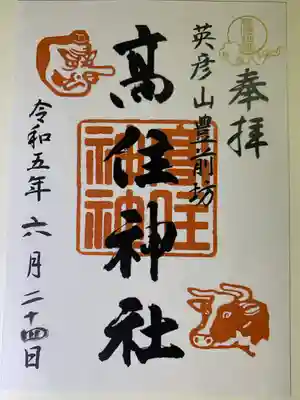 奉拝
英彦山豊前坊
高住神社
高住
神社
令和五年六月二十四日